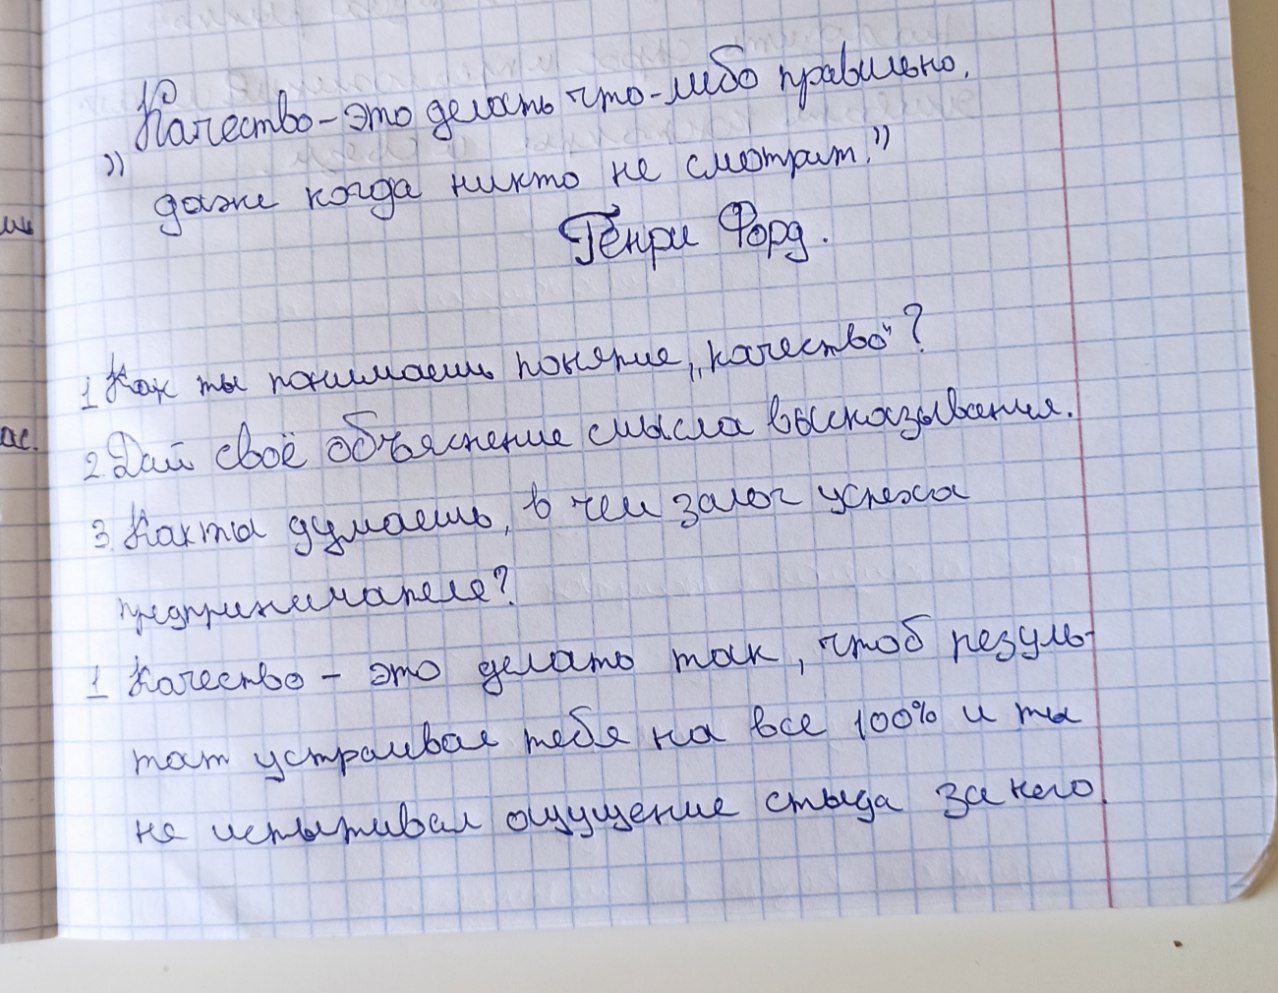 „Качество – это делать что-либо правильно,
даже когда никто не смотрит."
Генри Форд.
1 Как ты понимаешь понятие „качество"?
2. Дай своё объяснение смысла высказывания.
3. Как ты думаешь, в чем залог успеха
предпринимателя?
1 Качество – это делать так, чтоб резуль-
тат устраивал тебя на все 100% и ты
не испытывал ощущение стыда за него.
ас.